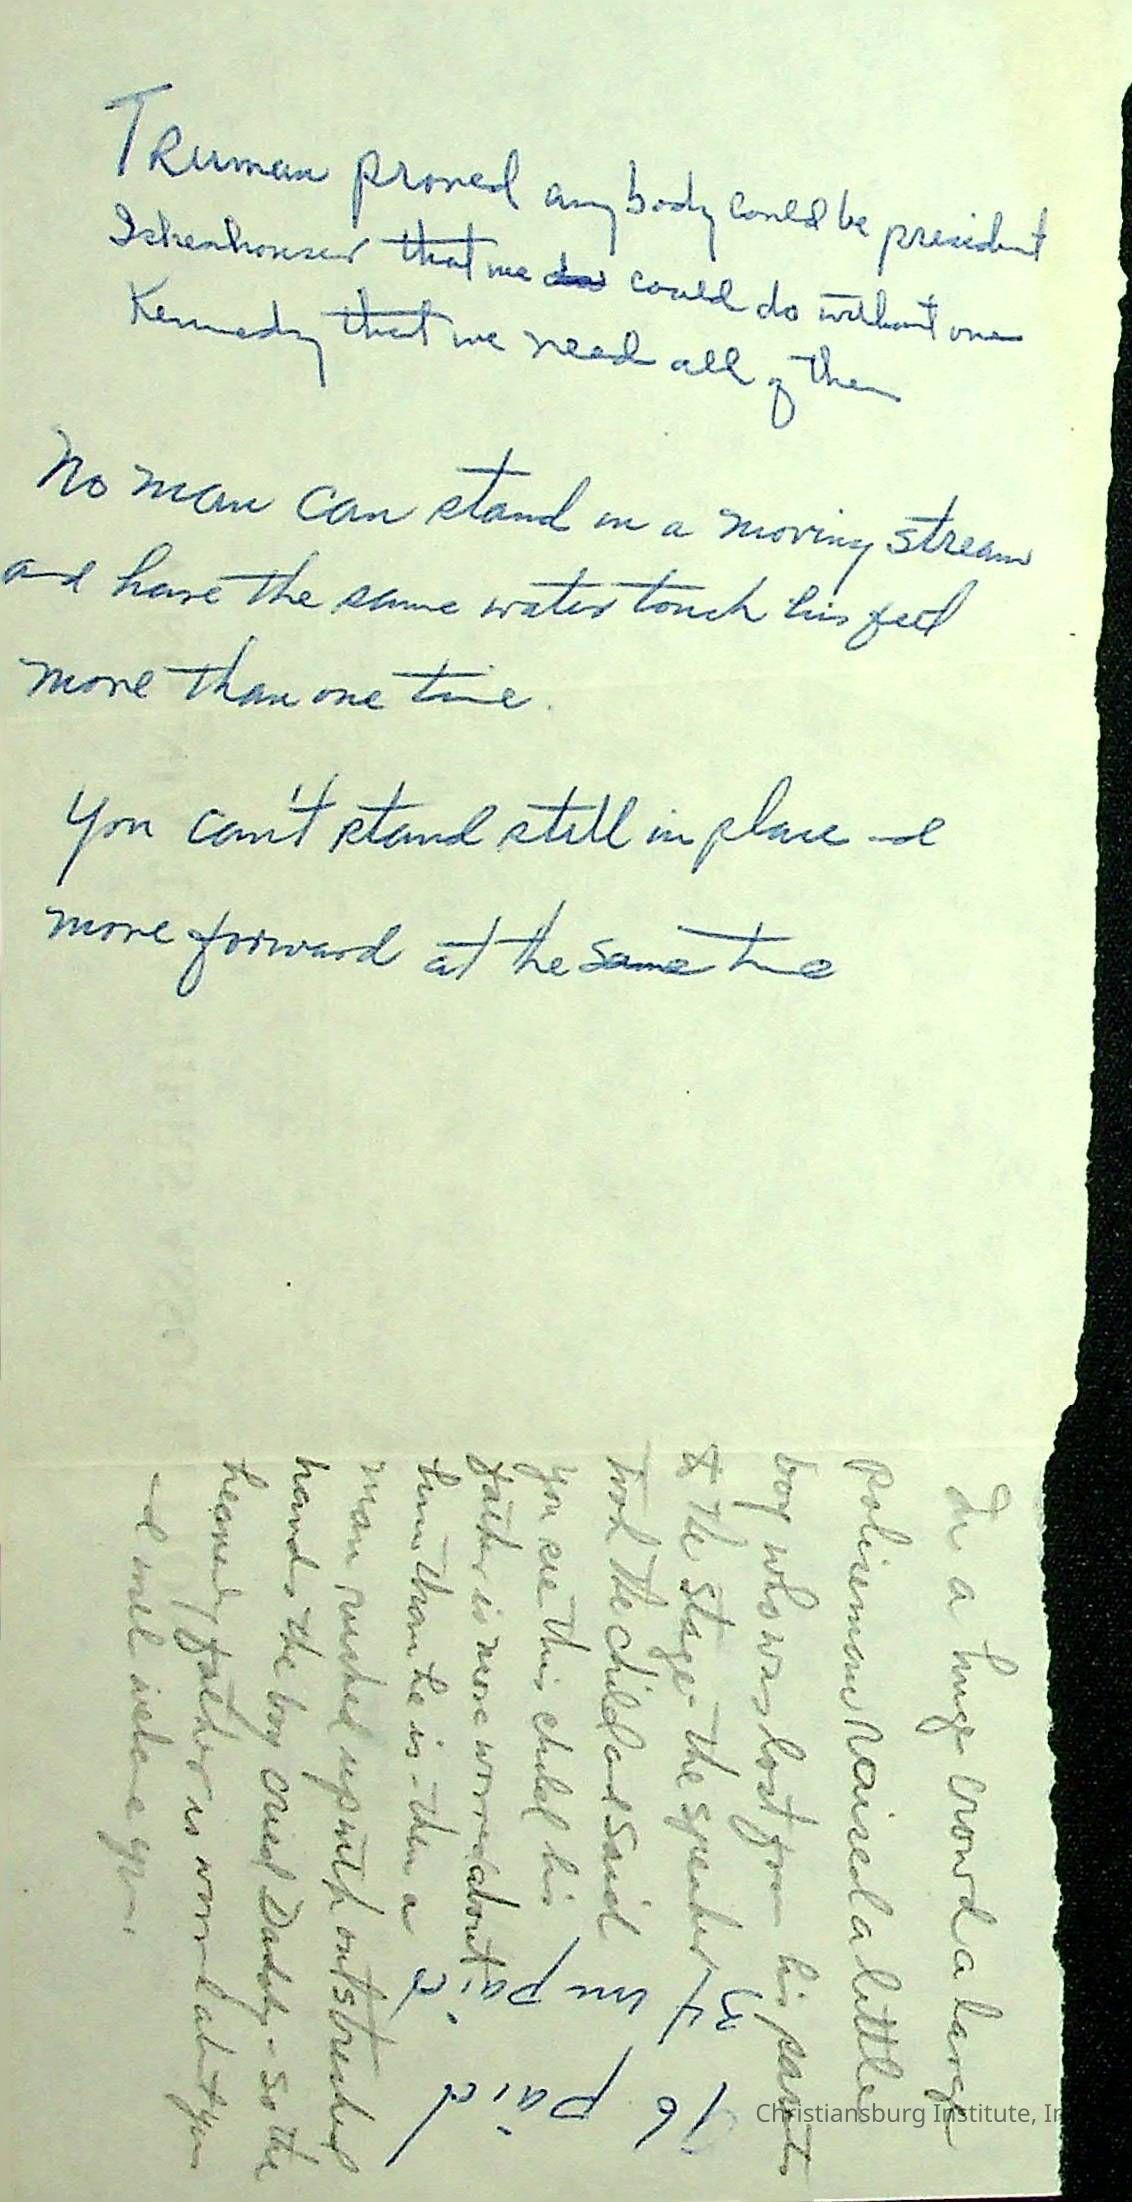 Truman proved anybody could be president
Iskenhouser that we could do without one
Kennedy that we need all of them
No man can stand in a moving stream
and have the same water touch his feet
more than one time.
You can't stand still in place and
move forward at the same time
In a huge crowd a large
policeman raised a little
boy who was lost from his parents
to the stage - the speaker
took the child and said
you see this child his
father is more worried about
him than he is - then a
man rushed up with outstreched
hands the boy cried Daddy - so the
heavenly father is worried about you
and will welcome you.
34 unpaid
16 paid
Christiansburg Institute, In